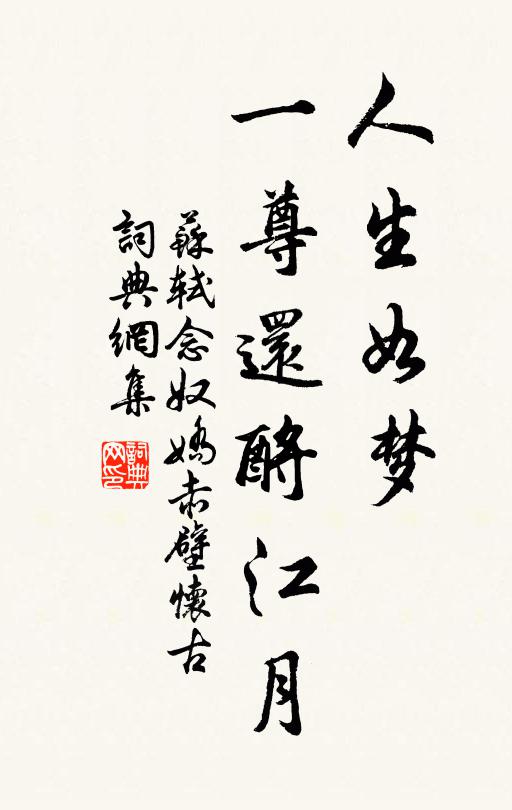 人生如梦
一尊還酹江月
蘇軾念奴嬌赤壁懷古
詞典網集
詞典网印